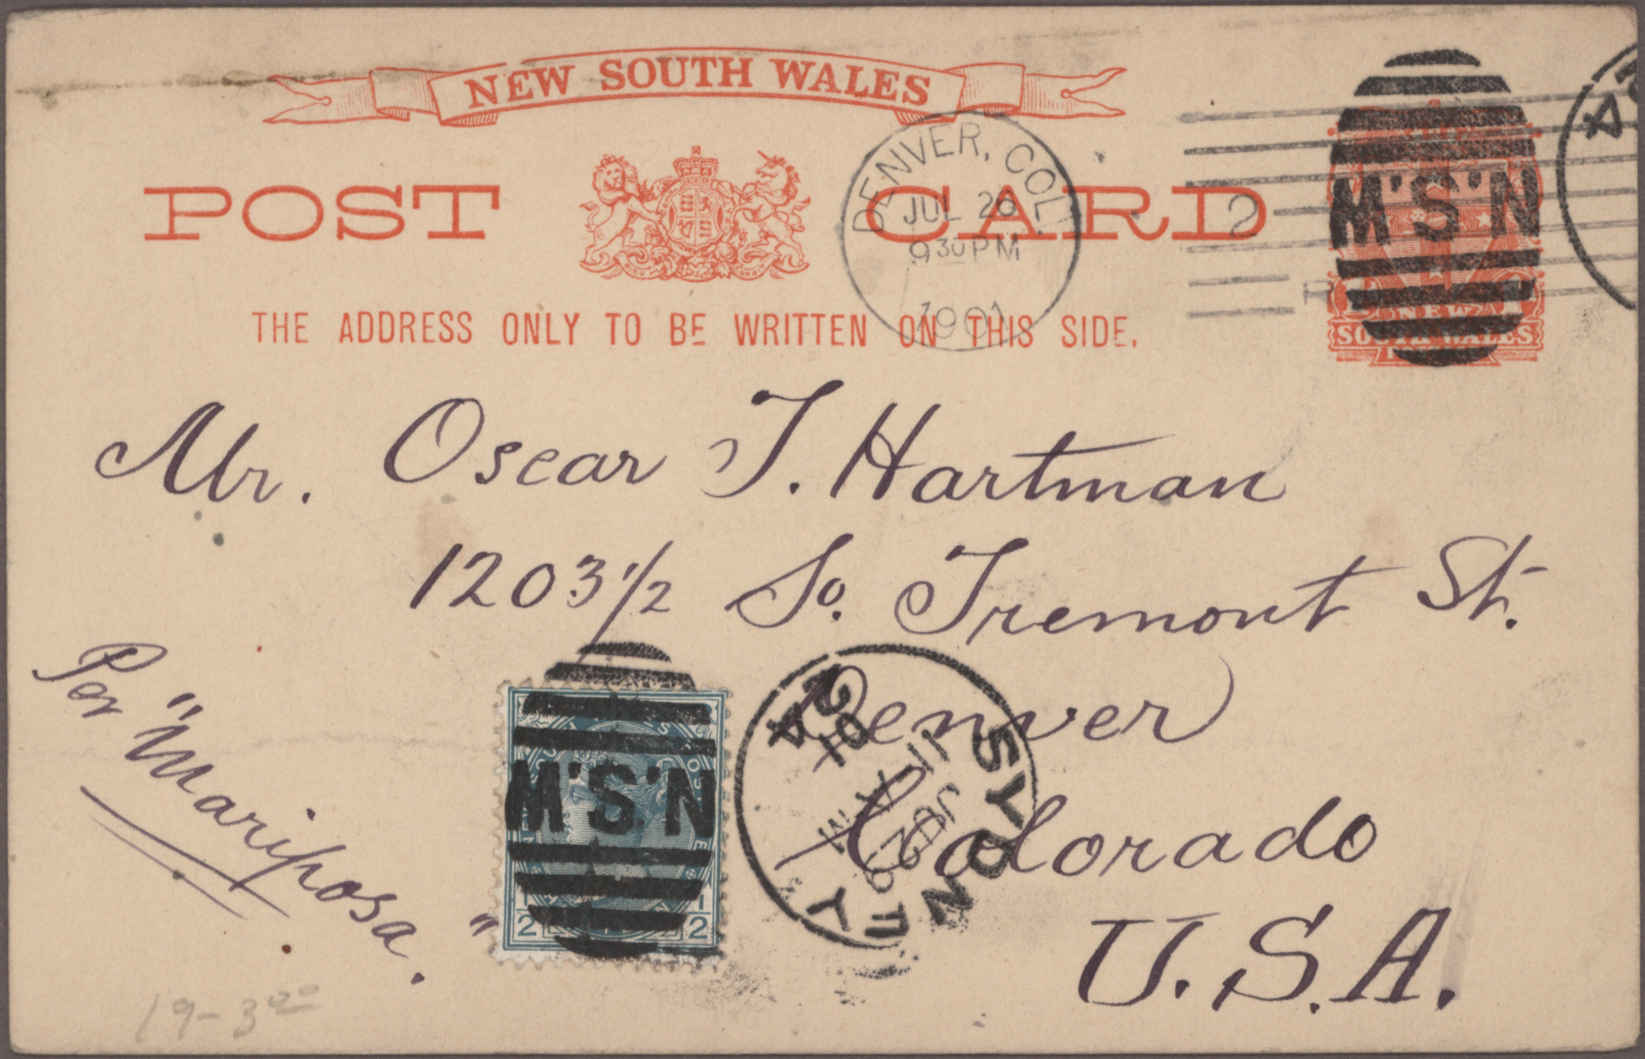 NEW SOUTH WALES
POST CARD
THE ADDRESS ONLY TO BE WRITTEN ON THIS SIDE.
DENVER, COL.
JUL 26
9 30 PM
1901
2
M'S'N
NEW
SOUTH WALES
24
Mr. Oscar T. Hartman
1203 1/2 So. Tremont St.
Denver
Colorado
U.S.A.
Per "Mariposa."
M'S'N
1/2
1/2
SYDNEY
24
19-3